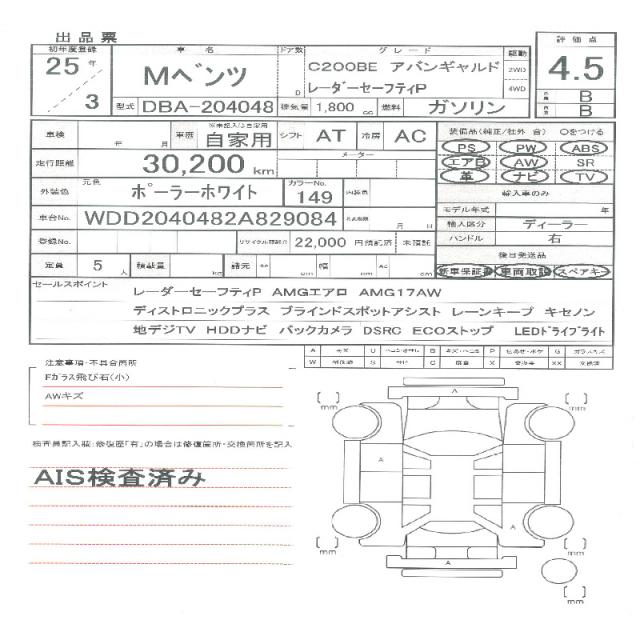 出品票
初年度登録 車名 ドア数 グレード 駆動 評価点
25年 Mベンツ D C200BE アバンギャルド 2WD 4.5
3 レーダーセーフティP 4WD
型式 DBA-204048 排気量 1,800 cc 燃料 ガソリン B
B
車検 年 月 車歴 ※未記入は自家用 自家用 シフト AT 冷房 AC 装備品(純正/社外 含) Oをつける
PS PW ABS
走行距離 30,200 km メーター エアB AW SR
革 ナビ TV
外装色 元色 ポーラーホワイト カラーNo. 149 内装色 輸入車のみ
モデル年式 年
車台No. WDD2040482A829084 月 日 輸入区分 ディーラー
ハンドル 右
登録No. リサイクル預託金 22,000 円預託済 未預託
後日発送品
定員 5人 積載量 kg 諸元 cm 幅 cm cm 新車保証書 車両取説 スペアキー
セールスポイント レーダーセーフティP AMGエアロ AMG17AW
ディストロニックプラス ブラインドスポットアシスト レーンキープ キセノン
地デジTV HDDナビ バックカメラ DSRC ECOストップ LEDドライブライト
A キズ U B キズ・ヘコミ P 色あせ・ボケ G ガラスキズ
W S サビ C 腐食 X 要交換 XX 交換済
注意事項・不具合箇所
Fガラス飛び石(小)
AWキズ
検査員記入欄:修復歴「有」の場合は修復箇所・交換箇所を記入
AIS検査済み
mm
mm
A
A
mm
mm
A
mm